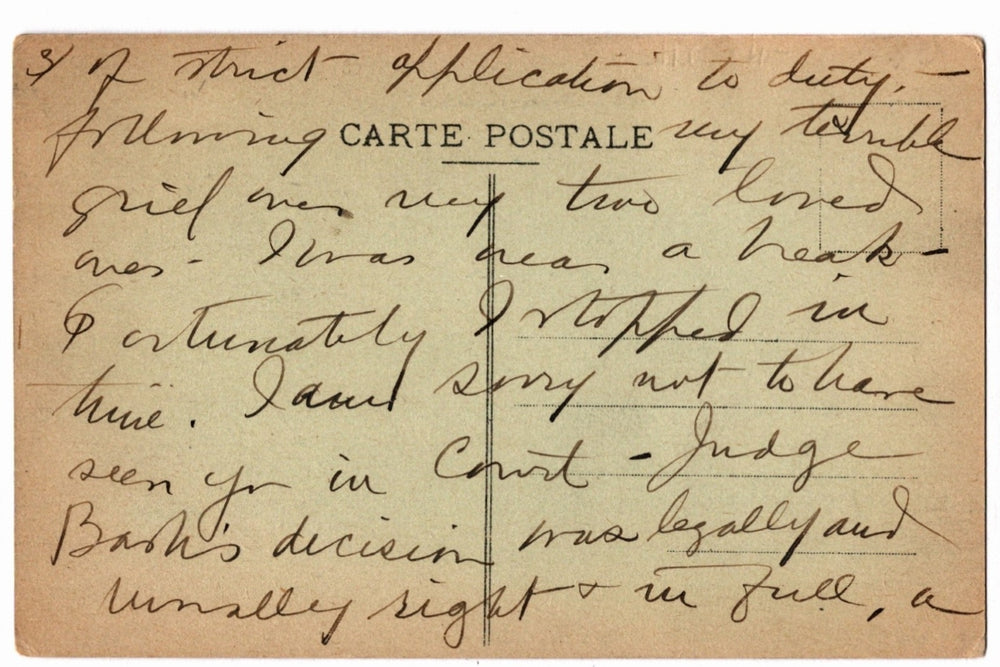 3/ of strict application to duty, -
following CARTE POSTALE my terrible
grief over my two loved
ones - I was near a break -
Fortunately I stopped in
time. I am sorry not to have
seen you in Court - Judge
decision was legally and
morally right + in full, a